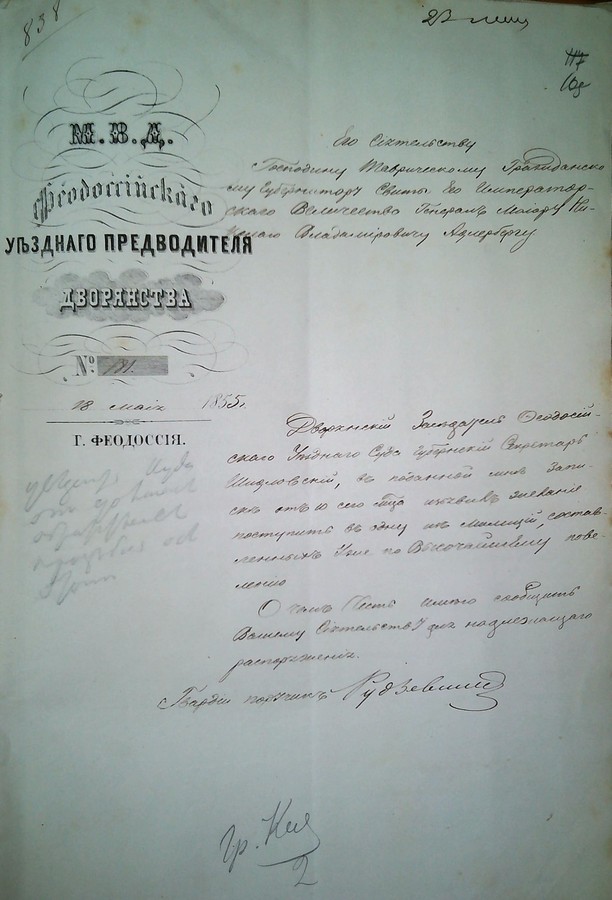 838
23 мая
117
М.В.Д.
Ѳеодоссійскаго
УѢЗДНАГО ПРЕДВОДИТЕЛЯ
ДВОРЯНСТВА
№ 181.
18 маія 1855 г.
Г. ФЕОДОССІЯ.
Его Сіятельству
Господину Таврическому Гражданско
му Губернатору Свиты Его Император-
скаго Величества Генералъ Маіору
Владиміровичу Адлербергу
Дворянскій Засѣдатель Ѳеодосій-
скаго Уѣзднаго Суда Губернскій Секретарь
Шидловскій, въ поданной мнѣ Запи-
скѣ отъ 10 сего м-ца изъявивъ желаніе
поступить въ одну изъ милицій, состав-
ленныхъ по Высочайшему пове-
лѣнію
О чемъ Честь имѣю сообщить
Вашему Сіятельству для надлежащаго
распоряженія.
Гвардіи поручикъ Рудзевичъ
2